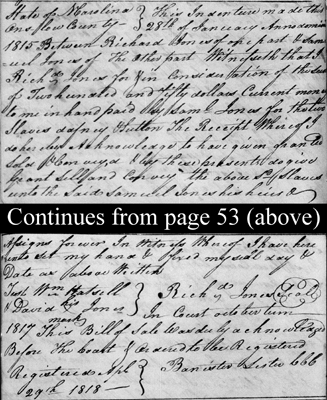 State of NCarolina } This Indenture made this
Onslow County } 28th of January Annodomini
1815 Between Richard Jones of one part & Sam
uel Jones of the Other part Witnesseth that I
Richd Jones for & in Consideration of the sum
of Two hundred and fifty dollars Current money
to me in hand paid by Saml Jones for the two
Slaves dafney Hutton The Receipt Whereof I
do hereby Acknowledge to have given granted
Sold & Conveyed & by these presents do give
grant Sell and Convey the above Sd Slaves
unto the Said Samuel Jones his heirs &
Continues from page 53 (above)
Assigns forever In Witness Whereof I have here
unto Set my hand & fixed my Seal day &
Date as above Written
Test Wm Hatsell } Richd Jones
& David Jones
mark } In Court october term
1817 This Bill of Sale Was duly acknowledged
Before the Court & ordered to be Registered
Registered Apl } Banister Lester CCC
29th 1818 —